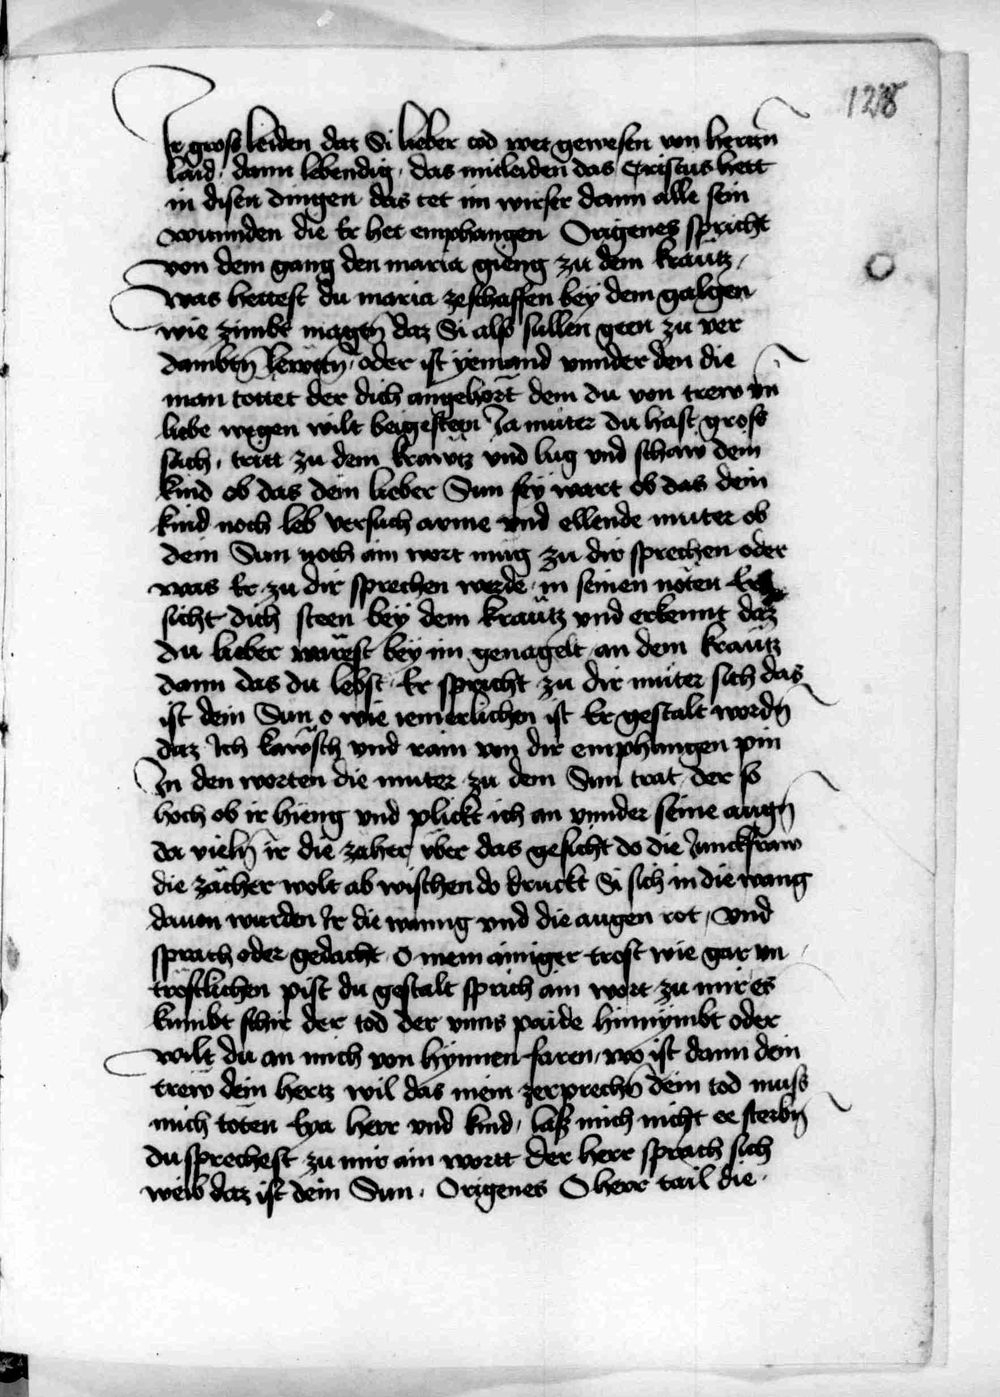 128
Ir gross leiden daz Si lieber tod wer gewesen von hertzn̄
laid / dann lebendig / das mitleiden das Cristus hett
in disen dingen das tet im wirser dann alle sein
wunnden die Er het emphangen Origenes spricht
von dem gang den maria gieng zu dem kraütz /
was hettest du maria zeschaffen beÿ dem galgen
wie zimbt magtn̄ daz Si also sullen geen zu ver
dambtn̄ lewtn̄ / oder ist ÿemand vnnder den die
man tottet der dich angehört dem du von trew vn̄
liebe wegen wilt beigesteen Ja müter du hast gross
sach / tritt zu dem krawtz vnd lug vnd schaw dein
kind ob das dein lieber Sun seÿ wart ob das dein
kind noch leb versuch arme vnd ellende muter ob
dein Sun noch ain wort mug zu dir sprechen oder
was Er zu dir sprechen werde in seinen nöten Er
sicht dich steen beÿ dem kraütz vnd erkennt daz
du lieber wärest beÿ im genagelt an dem kraütz
dann das du lebst / Er spricht zu dir müter sich das
ist dein Sun o wie iemerlichen ist Er gestalt wordn̄
daz Ich kawsch vnd rain von dir emphangen pin
In den worten die muter zu dem Sun trat der so
hoch ob ir hieng vnd plickt ich an vnnder seine augn̄
da vieln̄ ir die zäher über das gesicht do die Junckfraw
die zächer wolt ab wischen do druckt Si sich in die wang
dauon wurden Ir die wanng vnd die augen rot / vnd
sprach oder gedacht O mein ainiger trost wie gar vn
tröstlichen pist du gestalt sprich ain wort zu mir es
kumbt schir der tod der vnns paide hinnÿmbt oder
wilt du an mich von hÿnnen faren / wo ist dann dein
trew dein hertz wil das mein zerprechn̄ dein tod muss
mich töten Eya herr vnd kind / lass mich nicht ee sterbn̄
du sprechest zu mir ain wort der herr sprach sich
weib daz ist dein Sun / Origenes O herr tail die